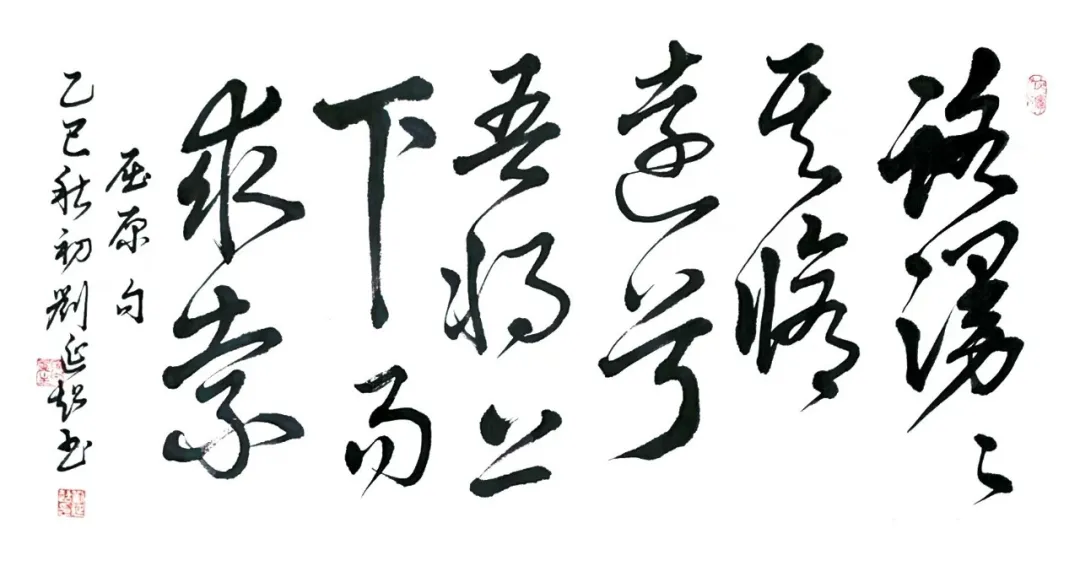 路漫々
其脩
遠兮
吾将上
下而
求索
屈原句
乙巳秋初劉延超书